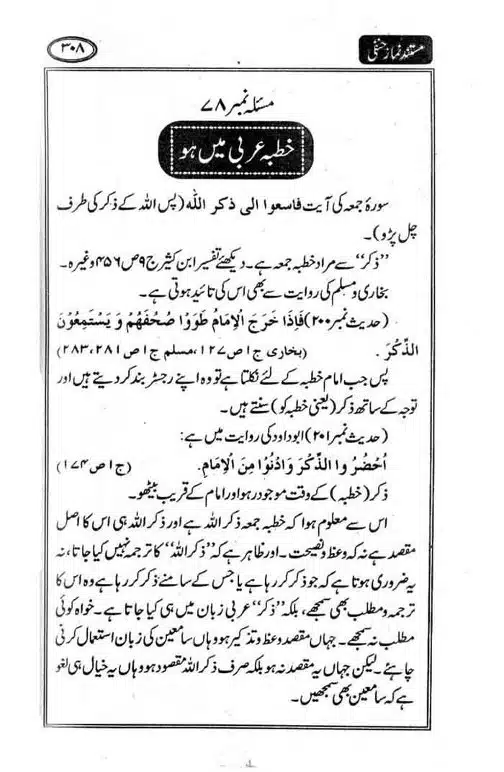 مستند نماز حنفی
۳۰۸
مسئلہ نمبر ۷۸
خطبہ عربی میں ہو
سورۂ جمعہ کی آیت فاسعوا الی ذکر اللہ (پس اللہ کے ذکر کی طرف
چل پڑو)۔
”ذکر“ سے مراد خطبہ جمعہ ہے۔ دیکھئے تفسیر ابن کثیر ج ۹ ص ۴۵۶ وغیرہ۔
بخاری و مسلم کی روایت سے بھی اس کی تائید ہوتی ہے۔
(حدیث نمبر ۲۰۰) فَاِذَا خَرَجَ الْاِمَامُ طَوَوْا صُحُفَهُمْ وَ يَسْتَمِعُوْنَ
الذِّكْرَ . (بخاری ج ۱ ص ۱۲۷، مسلم ج ۱ ص ۲۸۱، ۲۸۳)
پس جب امام خطبہ کے لئے نکلتا ہے تو وہ اپنے رجسٹر بند کر دیتے ہیں اور
توجہ کے ساتھ ذکر (یعنی خطبہ کو) سنتے ہیں۔
(حدیث نمبر ۲۰۱) ابوداود کی روایت میں ہے:
اُحْضُرُوا الذِّكْرَ وَادْنُوْا مِنَ الْاِمَامِ. (ج ۱ ص ۱۷۴)
ذکر (خطبہ) کے وقت موجود رہو اور امام کے قریب بیٹھو۔
اس سے معلوم ہوا کہ خطبہ جمعہ ذکر اللہ ہے اور ذکر اللہ ہی اس کا اصل
مقصد ہے نہ کہ وعظ و نصیحت۔ اور ظاہر ہے کہ ”ذکر اللہ“ کا ترجمہ نہیں کیا جاتا، نہ
یہ ضروری ہوتا ہے کہ جو ذکر کر رہا ہے یا جس کے سامنے ذکر کر رہا ہے وہ اس کا
ترجمہ و مطلب بھی سمجھے، بلکہ ”ذکر“ عربی زبان میں ہی کیا جاتا ہے۔ خواہ کوئی
مطلب نہ سمجھے۔ جہاں مقصد وعظ و تذکیر ہو وہاں سامعین کی زبان استعمال کرنی
چاہئے۔ لیکن جہاں یہ مقصد نہ ہو بلکہ صرف ذکر اللہ مقصود ہو وہاں یہ خیال ہی لغو
ہے کہ سامعین بھی سمجھیں۔